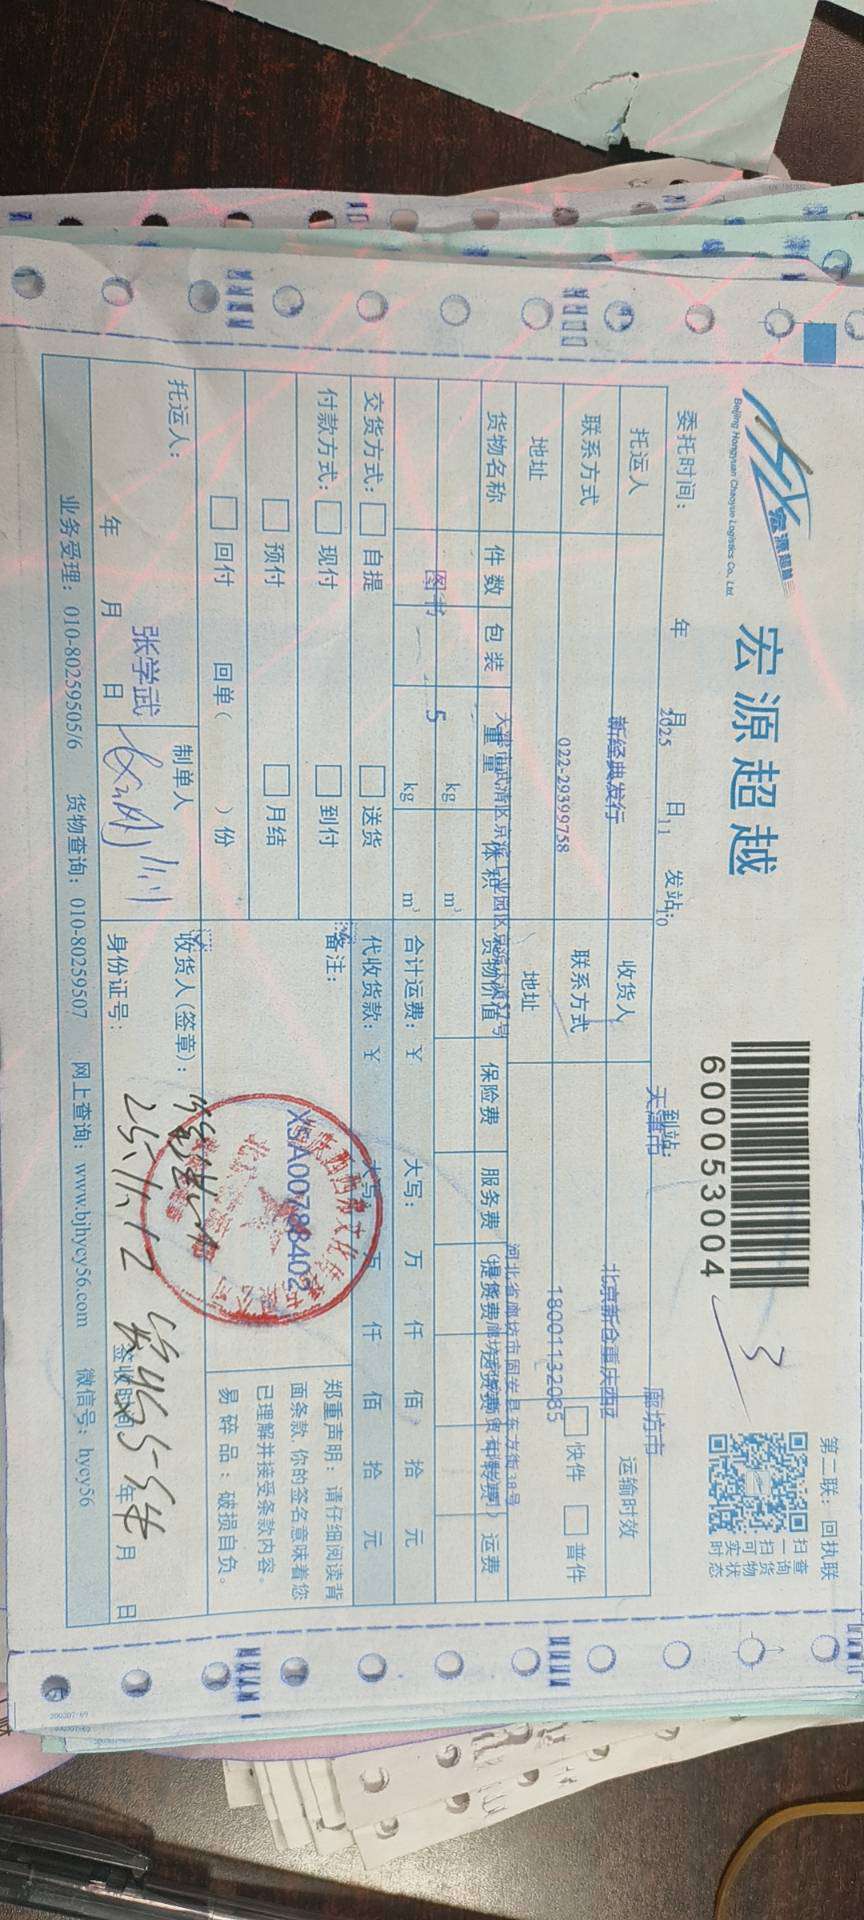 宏源超越
Beijing Hongyuan Chaoyue Logistics Co., Ltd
宏源超越
600053004
3
扫一扫 可实时
查询货物状态
第二联：回执联
委托时间： 年 月 日 发站： 到站：
2025 11 10 天津市 廊坊市
托运人 新经典发行 收货人 北京新谷重庆西区 运输时效
联系方式 022-29399758 联系方式 18001132085 快件 普件
地址 地址
河北省廊坊市固安县东方街38号
货物名称 件数 包装 重量 体积 货物价值 保险费 服务费 运费
图书 5 kg m³
kg m³
合计运费：¥ 大写： 万 仟 佰 拾 元
交货方式： 自提 送货
代收货款：¥ 大写： 万 仟 佰 拾 元
付款方式： 现付 到付
预付 月结
回付 回单（ ）份
备注：
XSA00788402
郑重声明：请仔细阅读背
面条款，你的签名意味着您
已理解并接受条款内容。
易碎品：破损自负。
托运人： 张学武
年 月 日
制单人
收货人(签章)：
身份证号：
25.11.12
签收时间 年 月 日
业务受理：010-80259505/6 货物查询：010-80259507 网上查询：www.bjhycy56.com 微信号：hycy56